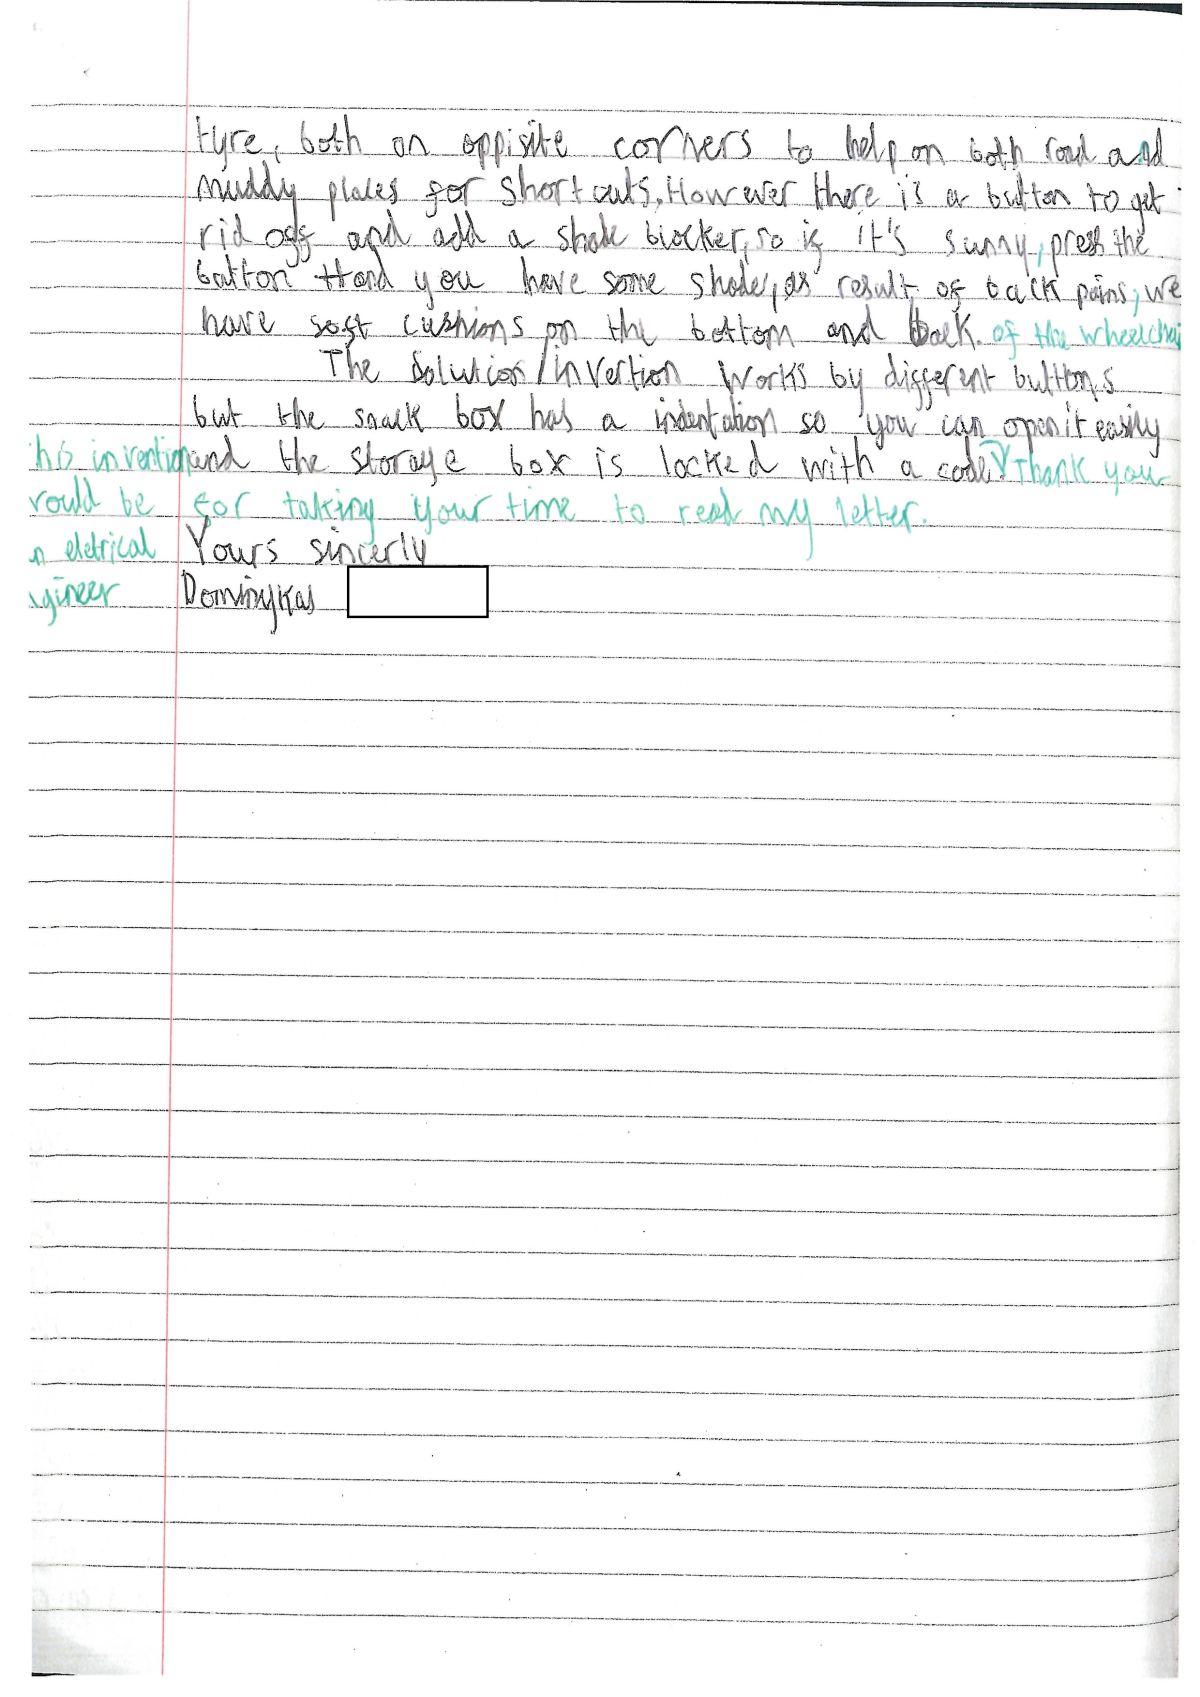 tyre, both on oppisite corners to help on both road and
muddy places for short cuts. However there is a button to get
rid off and add a shade blocker, so if it's sunny, press the
button and you have some shade, as result of back pains, we
have soft cushions on the bottom and back. of the wheelchai
The solution/invertion works by different buttons
but the snack box has a indentation so you can open it easily
his invention and the storage box is locked with a code. Thank you
rould be for taking your time to read my letter.
n eletrical Yours sincerly
gineer Dominykas